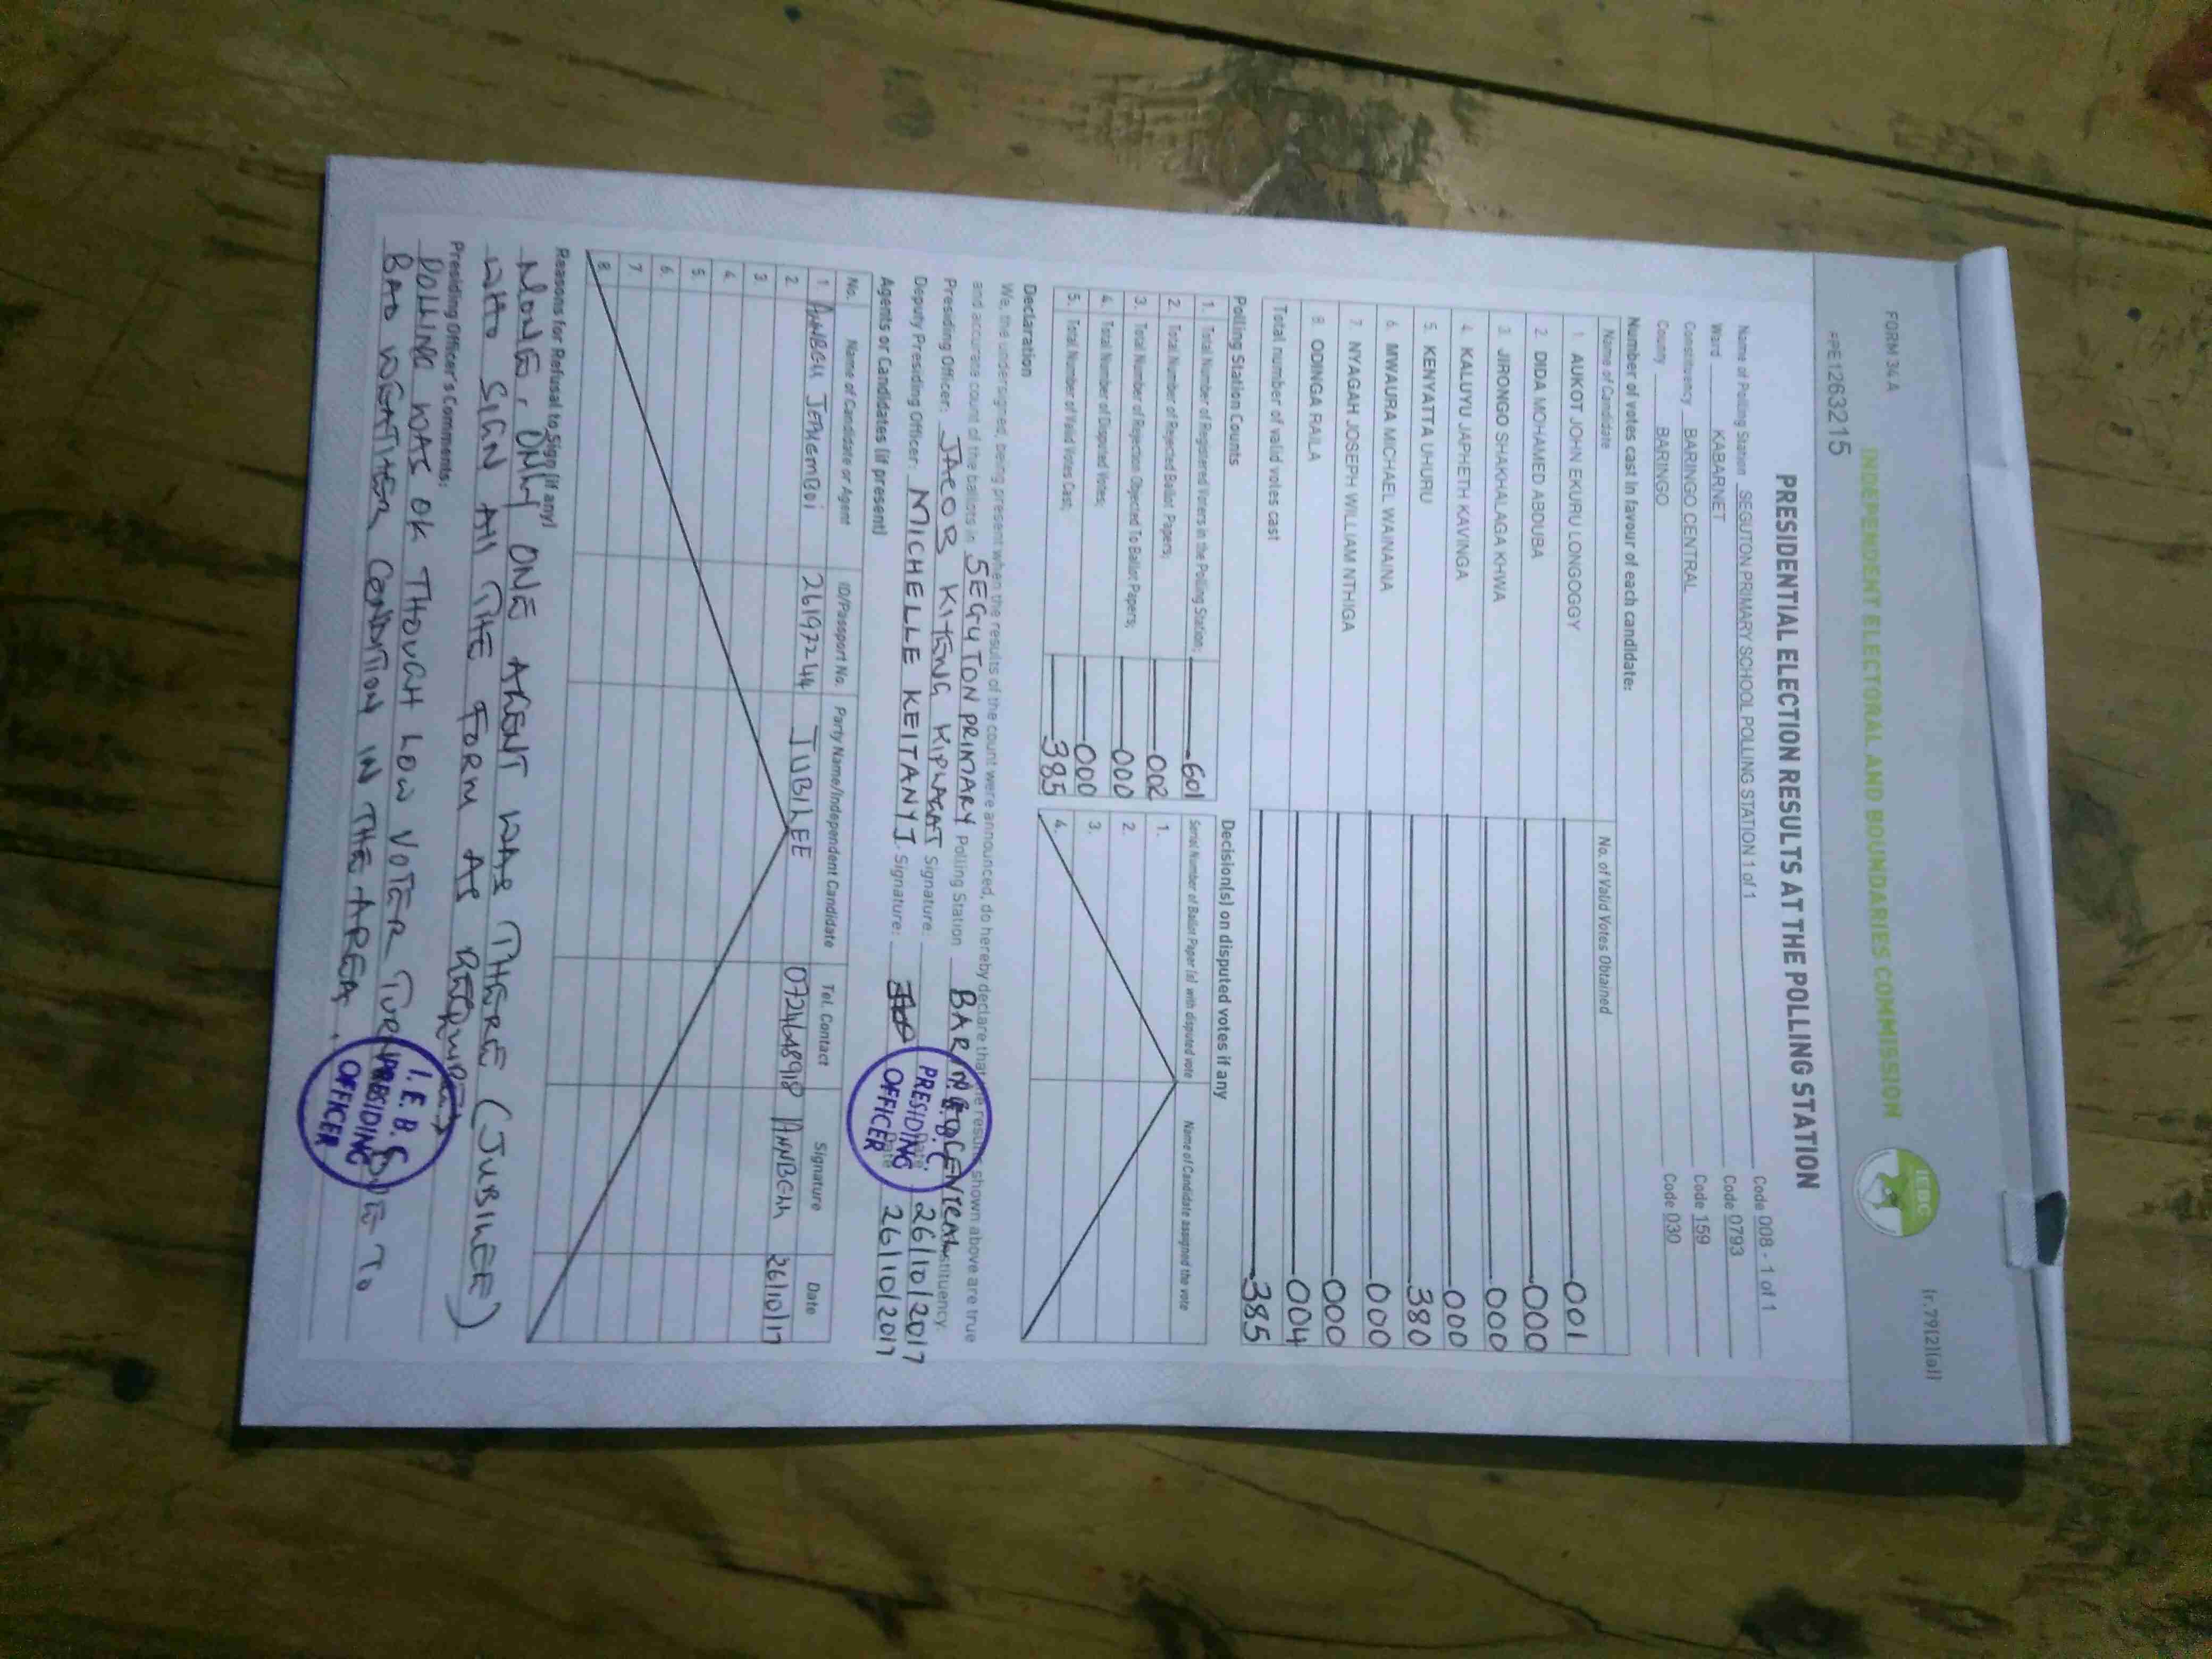 FORM 34 A
(r.79(2)(a))
INDEPENDENT ELECTORAL AND BOUNDARIES COMMISSION
IEBC
PE1263215
PRESIDENTIAL ELECTION RESULTS AT THE POLLING STATION
Name of Polling Station SEGUTON PRIMARY SCHOOL POLLING STATION 1 of 1 Code 008 - 1 of 1
Ward KABARNET Code 0793
Constituency BARINGO CENTRAL Code 159
County BARINGO Code 030
Number of votes cast in favour of each candidate:
Name of Candidate No. of Valid Votes Obtained
1. AUKOT JOHN EKURU LONGOGGY 001
2. DIDA MOHAMED ABDUBA 000
3. JIRONGO SHAKHALAGA KHWA 000
4. KALUYU JAPHETH KAVINGA 000
5. KENYATTA UHURU 380
6. MWAURA MICHAEL WAINAINA 000
7. NYAGAH JOSEPH WILLIAM NTHIGA 000
8. ODINGA RAILA 004
Total number of valid votes cast 385
Polling Station Counts
1. Total Number of Registered Voters in the Polling Station; 601
2. Total Number of Rejected Ballot Papers; 002
3. Total Number of Rejection Objected To Ballot Papers; 000
4. Total Number of Disputed Votes; 000
5. Total Number of Valid Votes Cast; 385
Decision(s) on disputed votes if any
Serial Number of Ballot Paper (s) with disputed vote Name of Candidate assigned the vote
1.
2.
3.
4.
Declaration
We, the undersigned, being present when the results of the count were announced, do hereby declare that the results shown above are true
and accurate count of the ballots in SEGUTON PRIMARY Polling Station BARINGO CENTRAL Constituency.
Presiding Officer: JACOB KITENG KIPLAGAT Signature: Date 26/10/2017
Deputy Presiding Officer: MICHELLE KEITANY J. Signature: Date 26/10/2017
I.E.B.C.
PRESIDING
OFFICER
Agents or Candidates (if present)
No. Name of Candidate or Agent ID/Passport No. Party Name/Independent Candidate Tel. Contact Signature Date
1. JEPKEMBOI 26197244 JUBILEE 0724648918 26/10/17
2.
3.
4.
5.
6.
7.
8.
Reasons for Refusal to sign (if any)
NONE, ONLY ONE AGENT WAS THERE (JUBILEE)
WHO SIGN ALL THE FORM AS REQUIRED
Presiding Officer's Comments:
POLLING WAS OK THOUGH LOW VOTER TURN DUE TO
BAD WEATHER CONDITION IN THE AREA.
I.E.B.C
PRESIDING
OFFICER